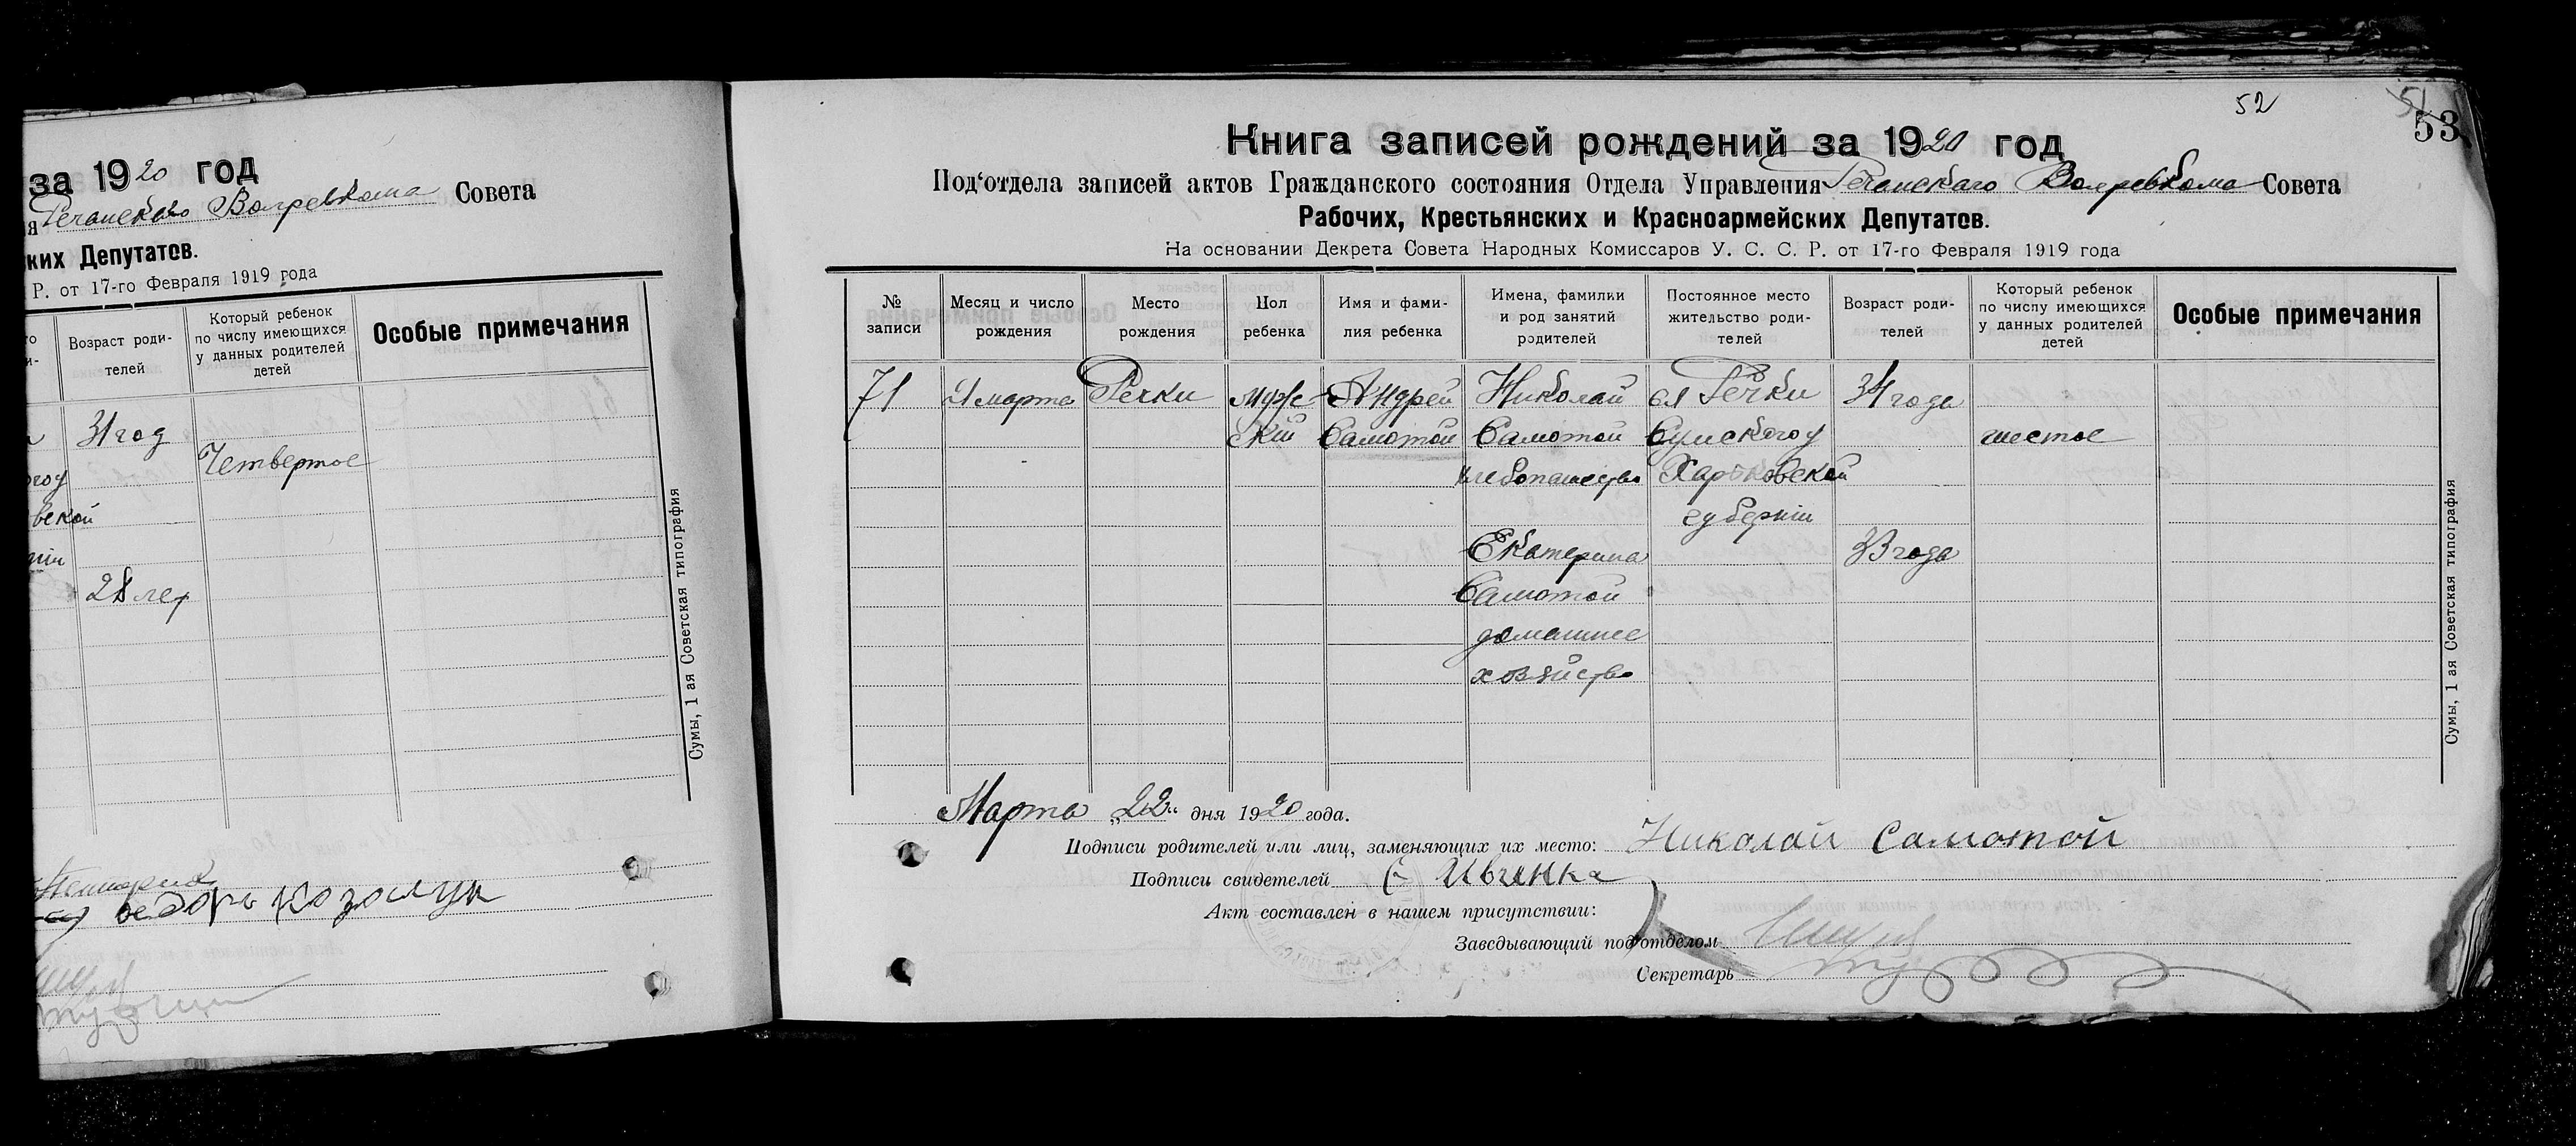 за 1920 год
я Речанскаго Волревкома Совета
ких Депутатов.
Р. от 17-го Февраля 1919 года
Возраст роди-
телей
Который ребенок
по числу имеющихся
у данных родителей
детей
Особые примечания
31 год
Четвертое
вской
28 лет
Сумы, 1 ая Советская типография
52
53
Книга записей рождений за 1920 год
Под‘отдела записей актов Гражданского состояния Отдела Управления Речанскаго Волревкома Совета
Рабочих, Крестьянских и Красноармейских Депутатов.
На основании Декрета Совета Народных Комиссаров У. С. С. Р. от 17-го Февраля 1919 года
№
записи
Месяц и число
рождения
Место
рождения
Пол
ребенка
Имя и фами-
лия ребенка
Имена, фамилии
и род занятий
родителей
Постоянное место
жительство роди-
телей
Возраст роди-
телей
Который ребенок
по числу имеющихся
у данных родителей
детей
Особые примечания
71
21 марта
Речки
муж-
скій
Андрей
Самотой
Николай
Самотой
хлебопашество
Екатерина
Самотой
домашнее
хозяйство
сл Речки
Сумского у
Харьковской
губерніи
34 года
33 года
шестое
Сумы, 1 ая Советская типография
Марта „22“ дня 1920 года.
Подписи родителей или лиц, заменяющих их место: Николай Самотой
Подписи свидетелей
Акт составлен в нашем присутствии:
Заведывающий под‘отделом
Секретарь